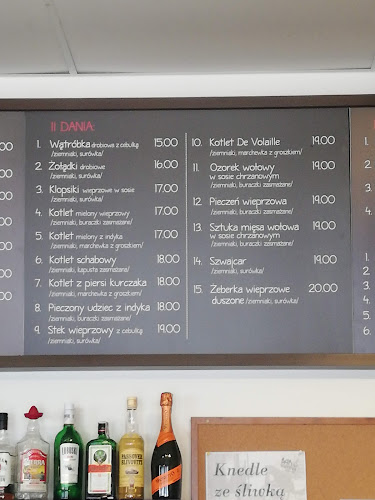 II DANIA:
1. Wątróbka drobiowa z cebulką 15.00
/ziemniaki, surówka/
2. Żołądki drobiowe 16.00
/ziemniaki, surówka/
3. Klopsiki wieprzowe w sosie 17.00
/ziemniaki, surówka/
4. Kotlet mielony wieprzowy 17.00
/ziemniaki, buraczki zasmażane/
5. Kotlet mielony z indyka 17.00
/ziemniaki, marchewka z groszkiem/
6. Kotlet schabowy 18.00
/ziemniaki, kapusta zasmażana/
7. Kotlet z piersi kurczaka 18.00
/ziemniaki, marchewka z groszkiem/
8. Pieczony udziec z indyka 18.00
/ziemniaki, buraczki zasmażane/
9. Stek wieprzowy z cebulką 19.00
/ziemniaki, surówka/
10. Kotlet De Volaille 19.00
/ziemniaki, marchewka z groszkiem/
11. Ozorek wołowy 19.00
w sosie chrzanowym
/ziemniaki, buraczki zasmażane/
12. Pieczeń wieprzowa 19.00
/ziemniaki, buraczki zasmażane/
13. Sztuka mięsa wołowa 19.00
w sosie chrzanowym
/ziemniaki, buraczki zasmażane/
14. Szwajcar 19.00
/ziemniaki, surówka/
15. Żeberka wieprzowe 20.00
duszone /ziemniaki, surówka/
Knedle
ze śliwką